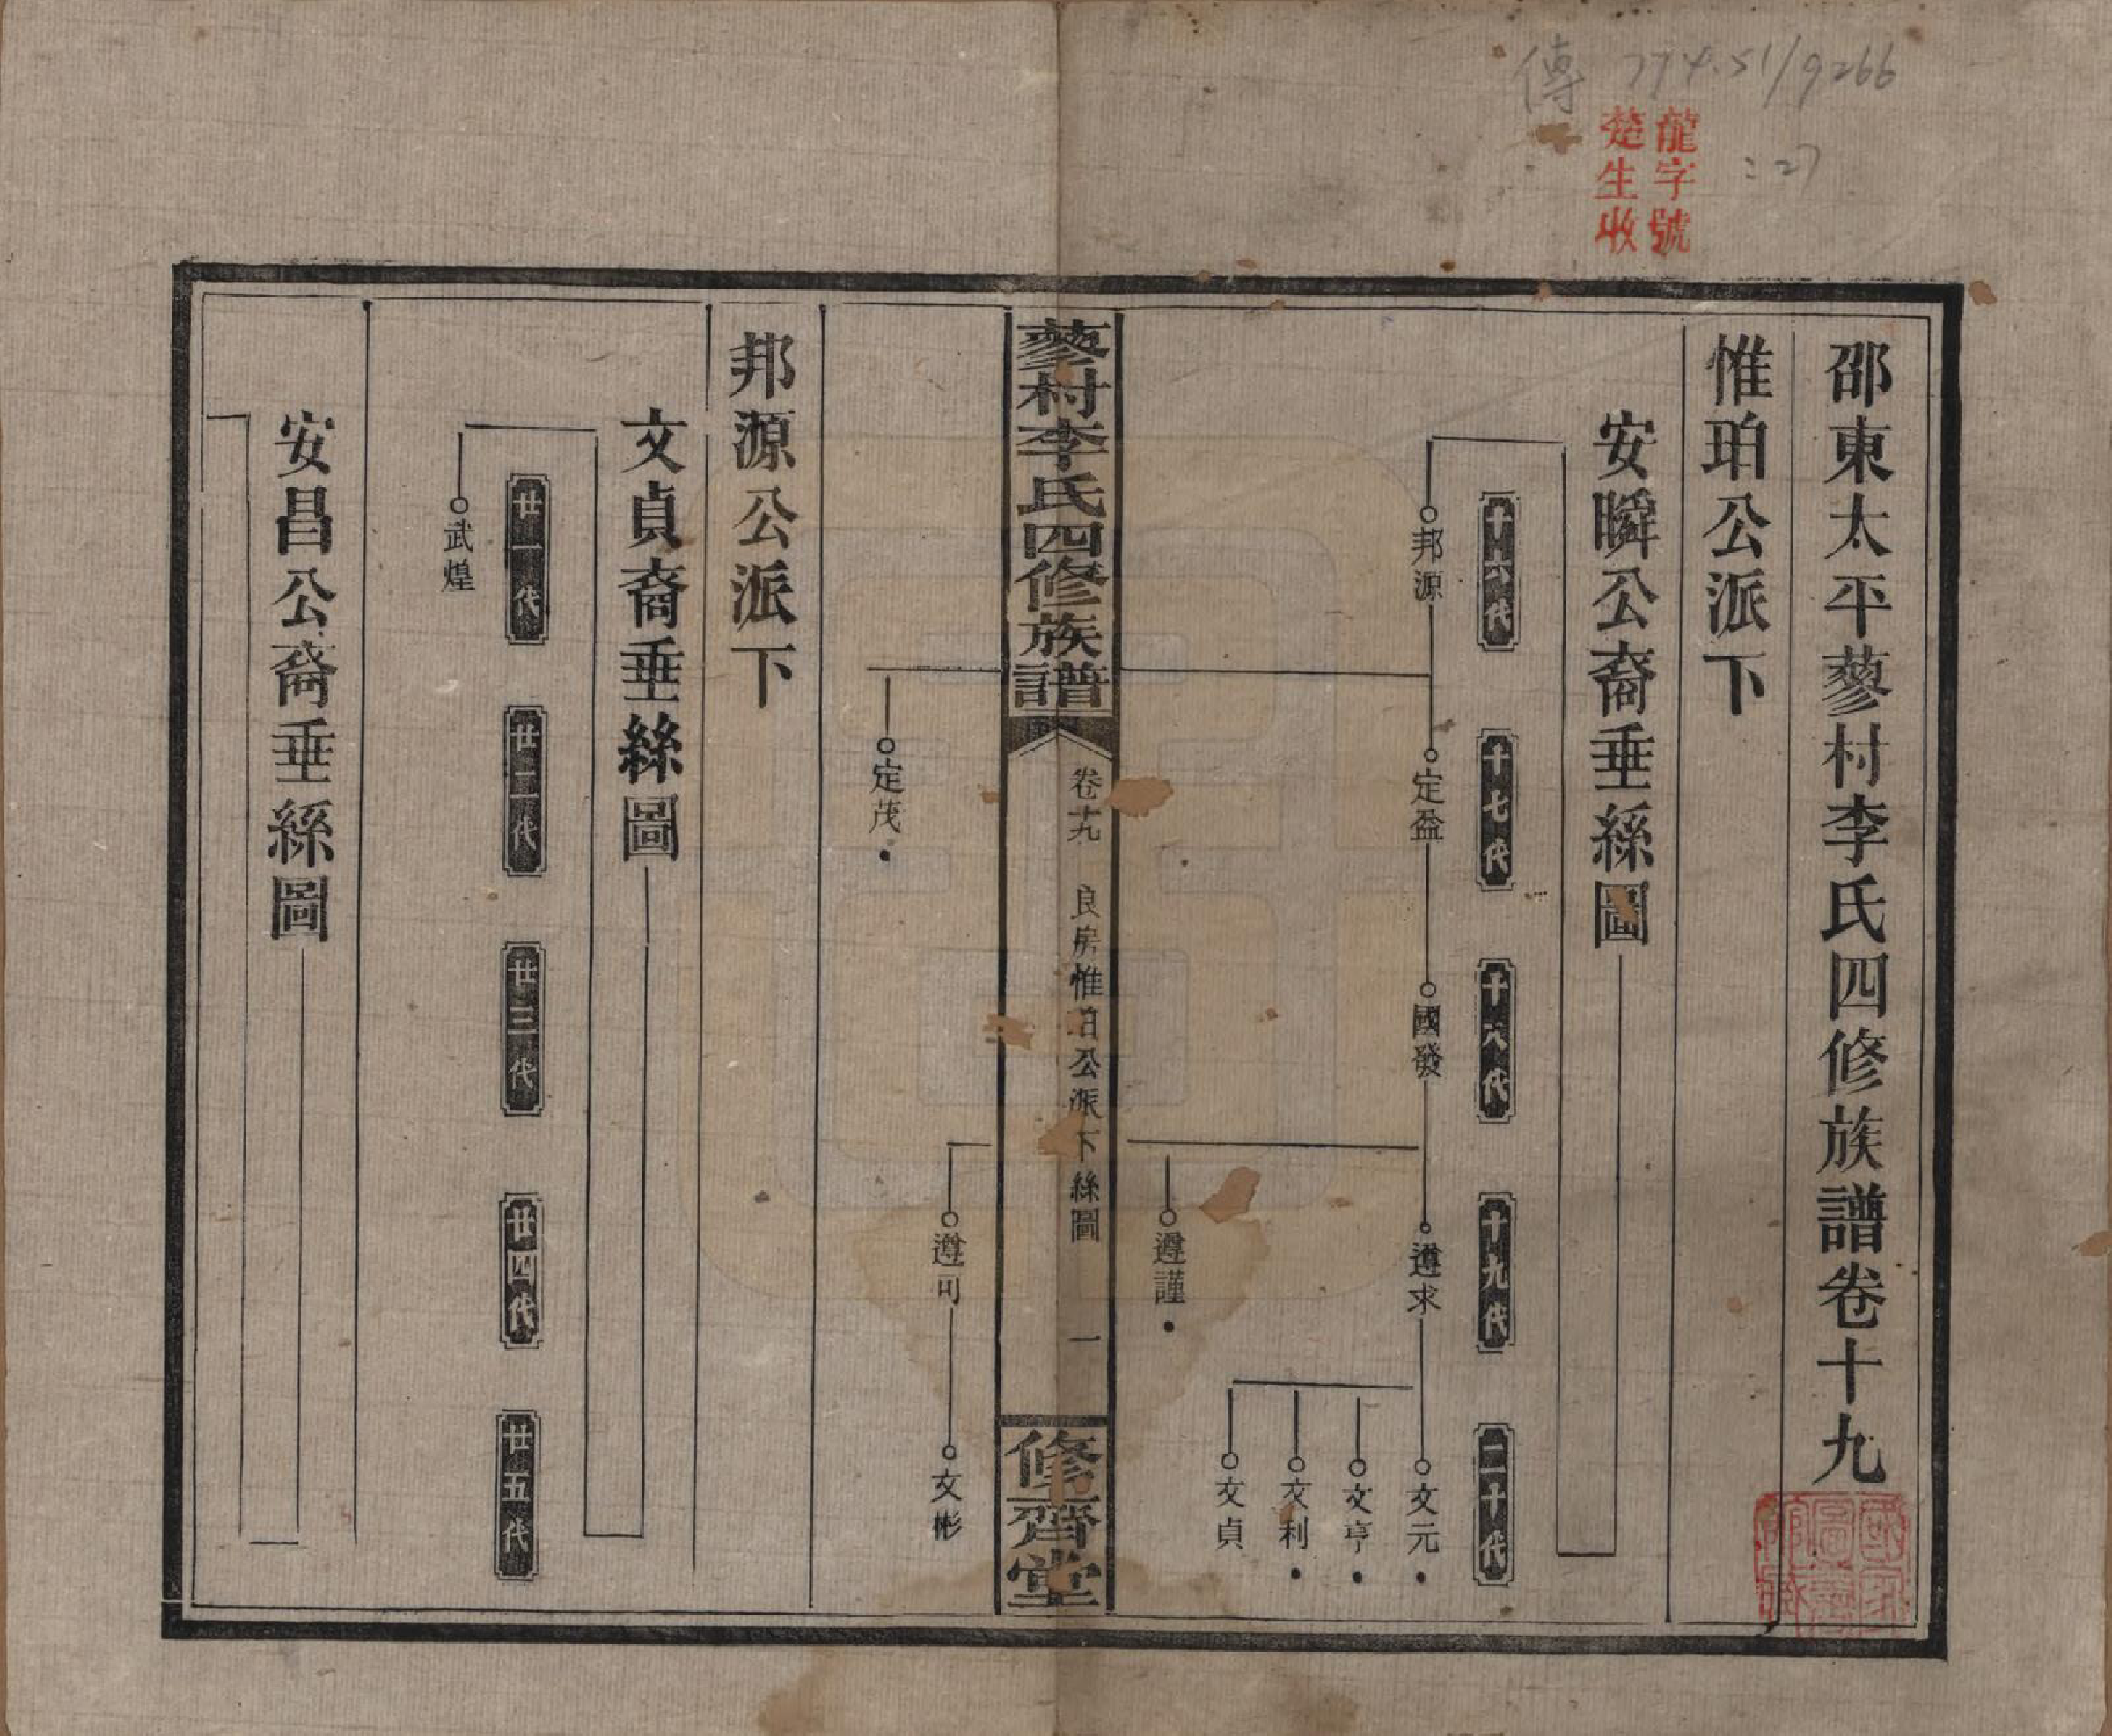 傳 774.51/9266
:27
龍字號
楚生收
邵東太平蓼村李氏四修族譜卷十九
惟珀公派下
安瞬公裔垂絲圖
十六代
十七代
十八代
十九代
二十代
邦源
定盈
國發
遵求
文元
文亨
文利
文貞
遵謹
蓼村李氏四修族譜
卷十九
良房惟珀公派下絲圖
一
修齊堂
遵可
文彬
定茂
邦源公派下
文貞裔垂絲圖
廿一代
廿二代
廿三代
廿四代
廿五代
武煌
安昌公裔垂絲圖